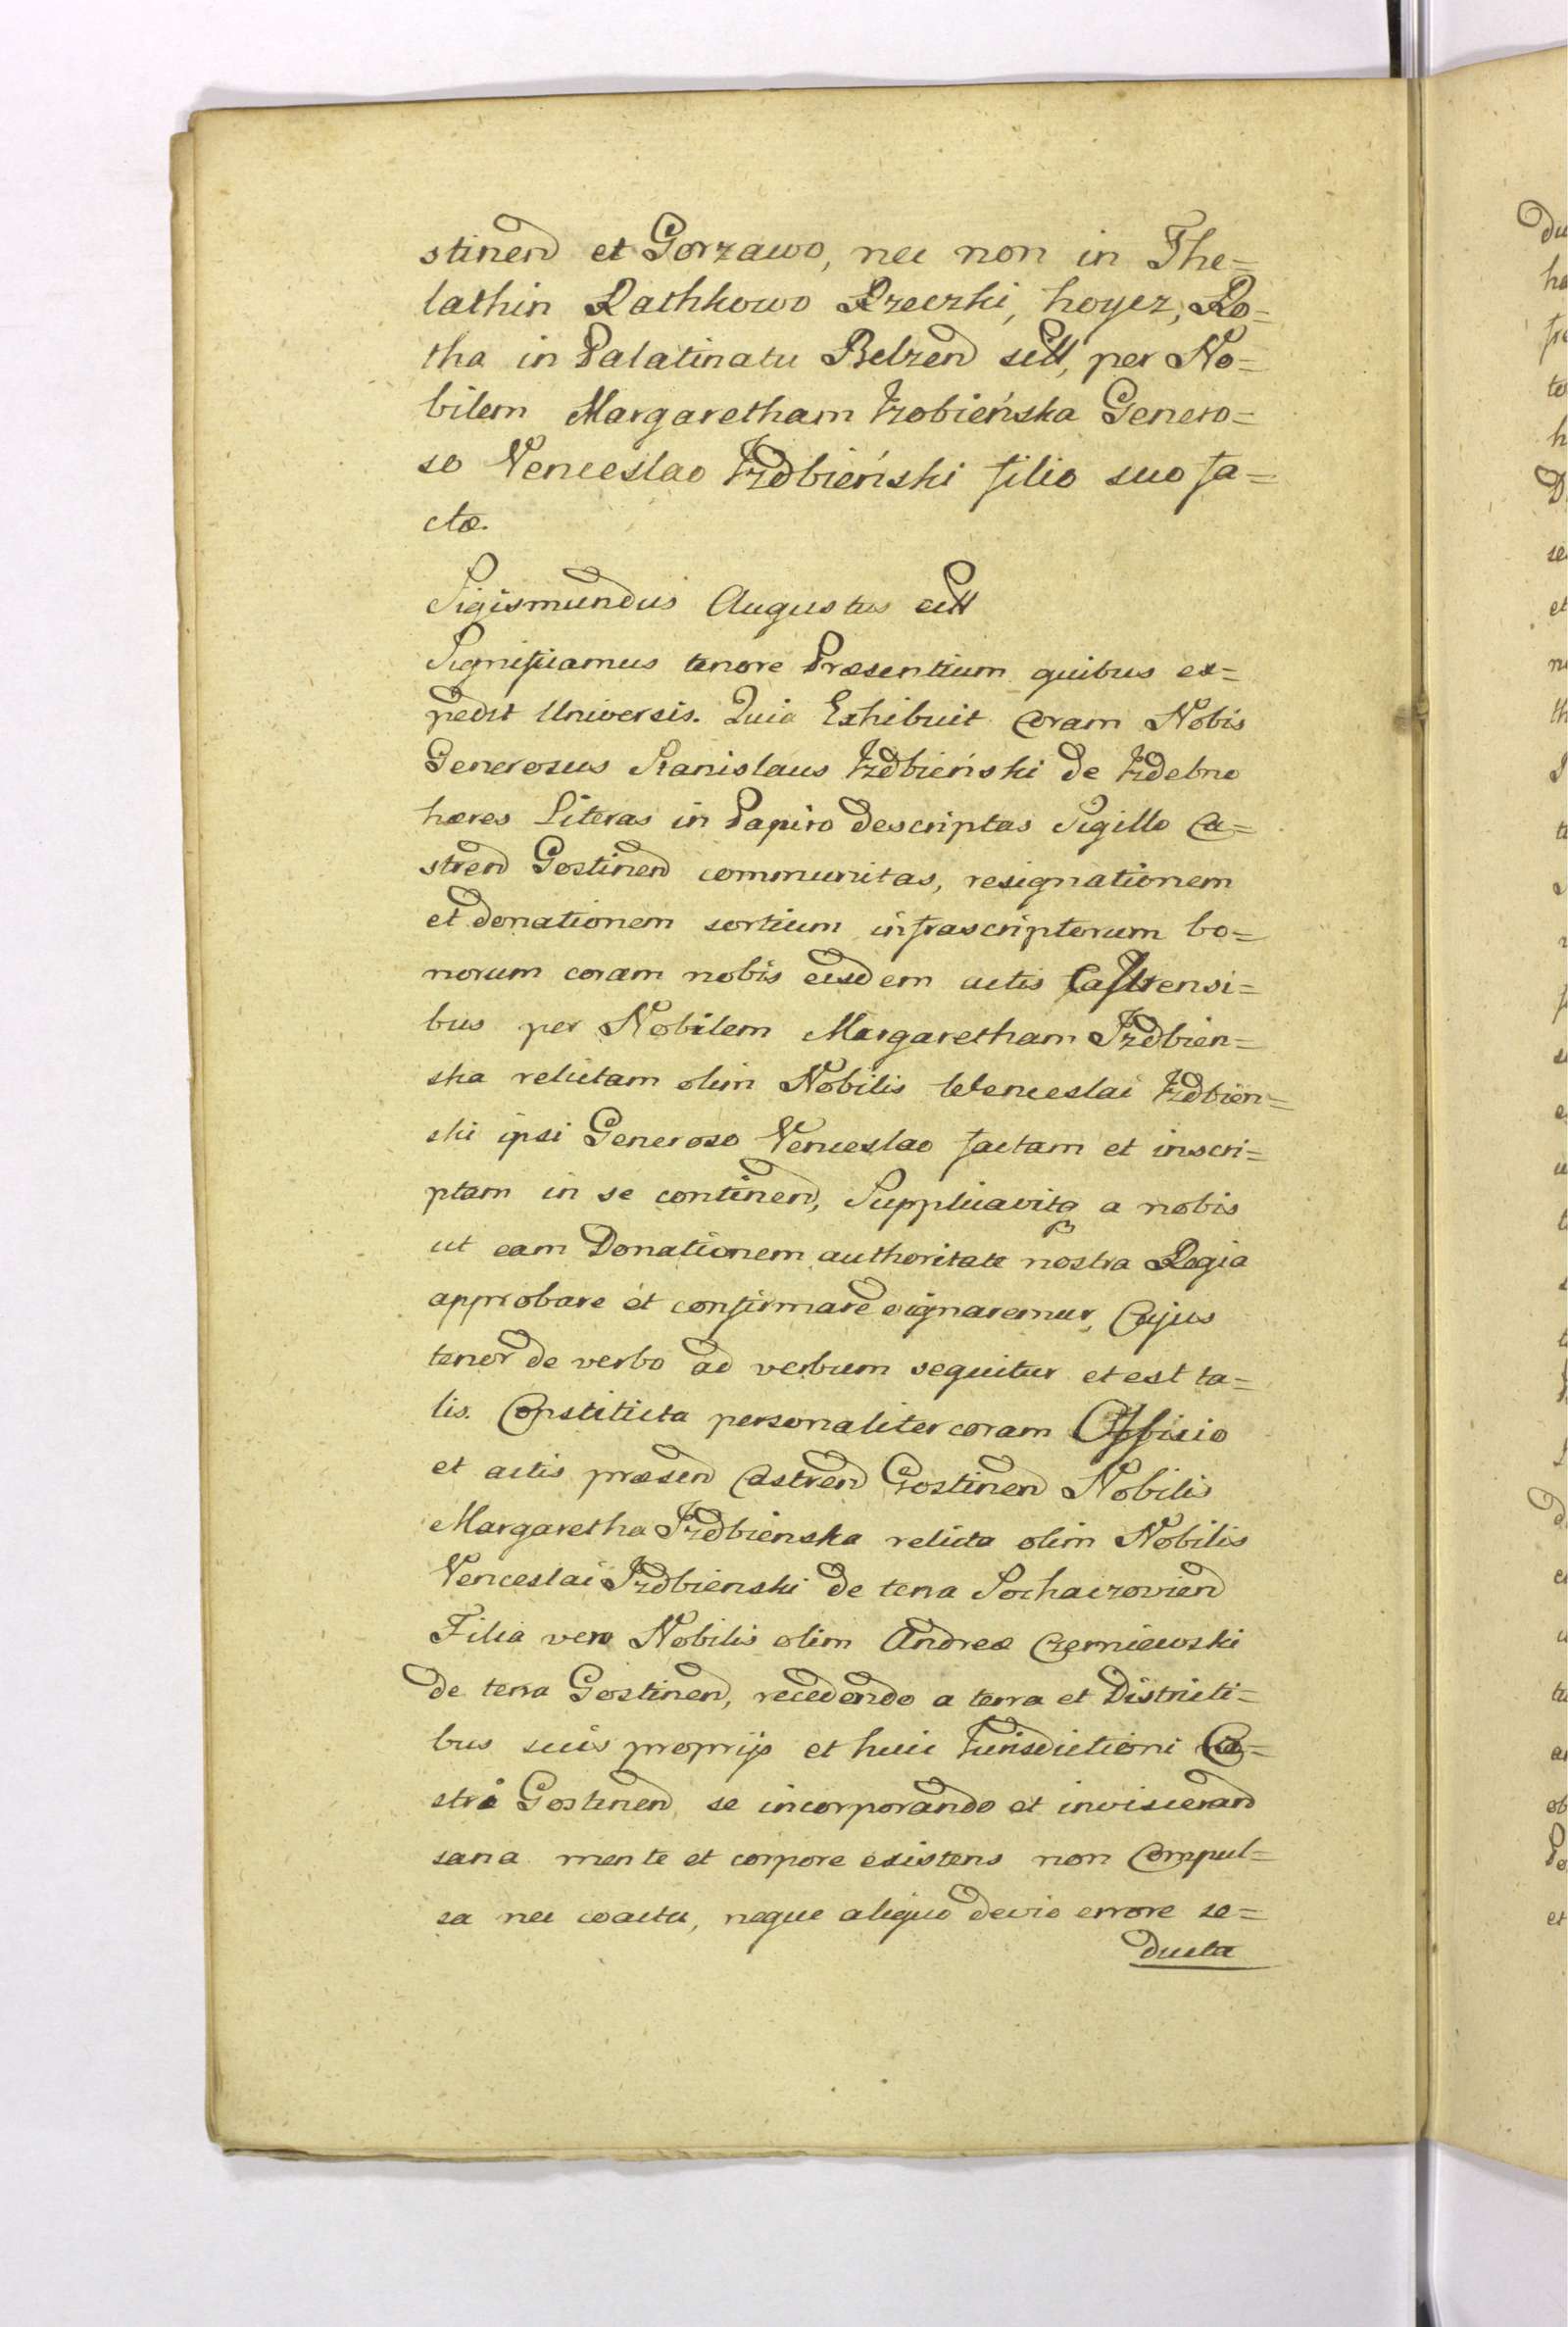 stinen et Gorzawo, nec non in The=
lathin Rathkowo Rzeczki, hoyez, Ro=
tha in Palatinatu Belzen sitt, per No=
bilem Margaretham Izdbieńska Genero=
so Venceslao Izdbieński filio suo fa=
ctæ.
Sigismundus Augustus ett
Significamus tenore Præsentium quibus ex=
pedit Universis. Quia Exhibuit Coram Nobis
Generosus Stanislaus Izdbieński de Izdebno
hæres Literas in Papiro descriptas Sigillo Ca=
stren Gostinen communitas, resignationem
et donationem sortium infrascriptorum bo=
norum coram nobis eisdem actis Castrensi=
bus per Nobilem Margaretham Izdbien=
ska relictam olim Nobilis Wenceslai Izdbien=
ski ipsi Generoso Venceslao factam et inscri=
ptam in se continen, Supplicavitq a nobis
ut eam Donationem authoritate nostra Regia
approbare et confirmare dignaremur, Cujus
tenor de verbo ad verbum sequitur et est ta=
lis. Constituta personaliter coram Officio
et actis præsen Castren Gostinen Nobilis
Margaretha Izdbienska relicta olim Nobilis
Venceslai Izdbienski de terra Sochaczovien
Filia vero Nobilis olim Andreæ Czerniewski
de terra Gostinen, recedendo a terra et Districti=
bus suis proprijs et huic Jurisdictioni Ca=
stri Gostinen se incorporando et inviscerand
sana mente et corpore existens non Compul=
sa nec coacta, neque aliquo devio errore se=
ducta